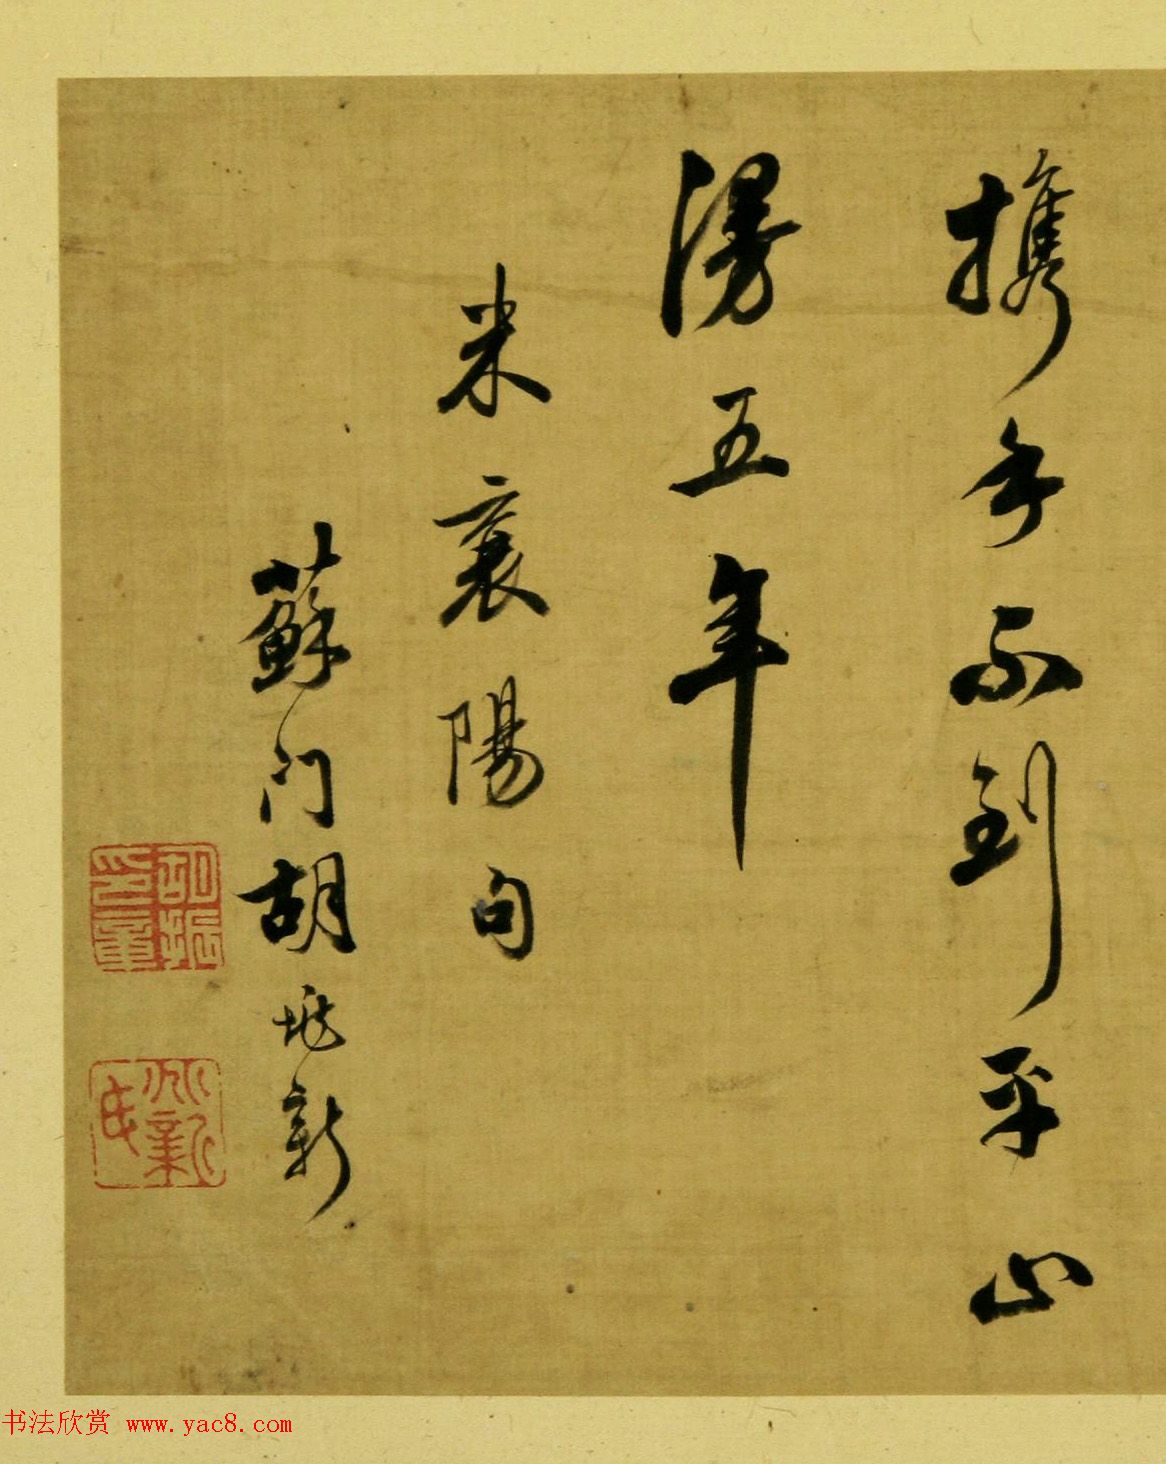 携手不到平山
漫五年
米襄陽句
蘇门胡兆新
胡振印量
兆新氏
书法欣赏 www.yac8.com